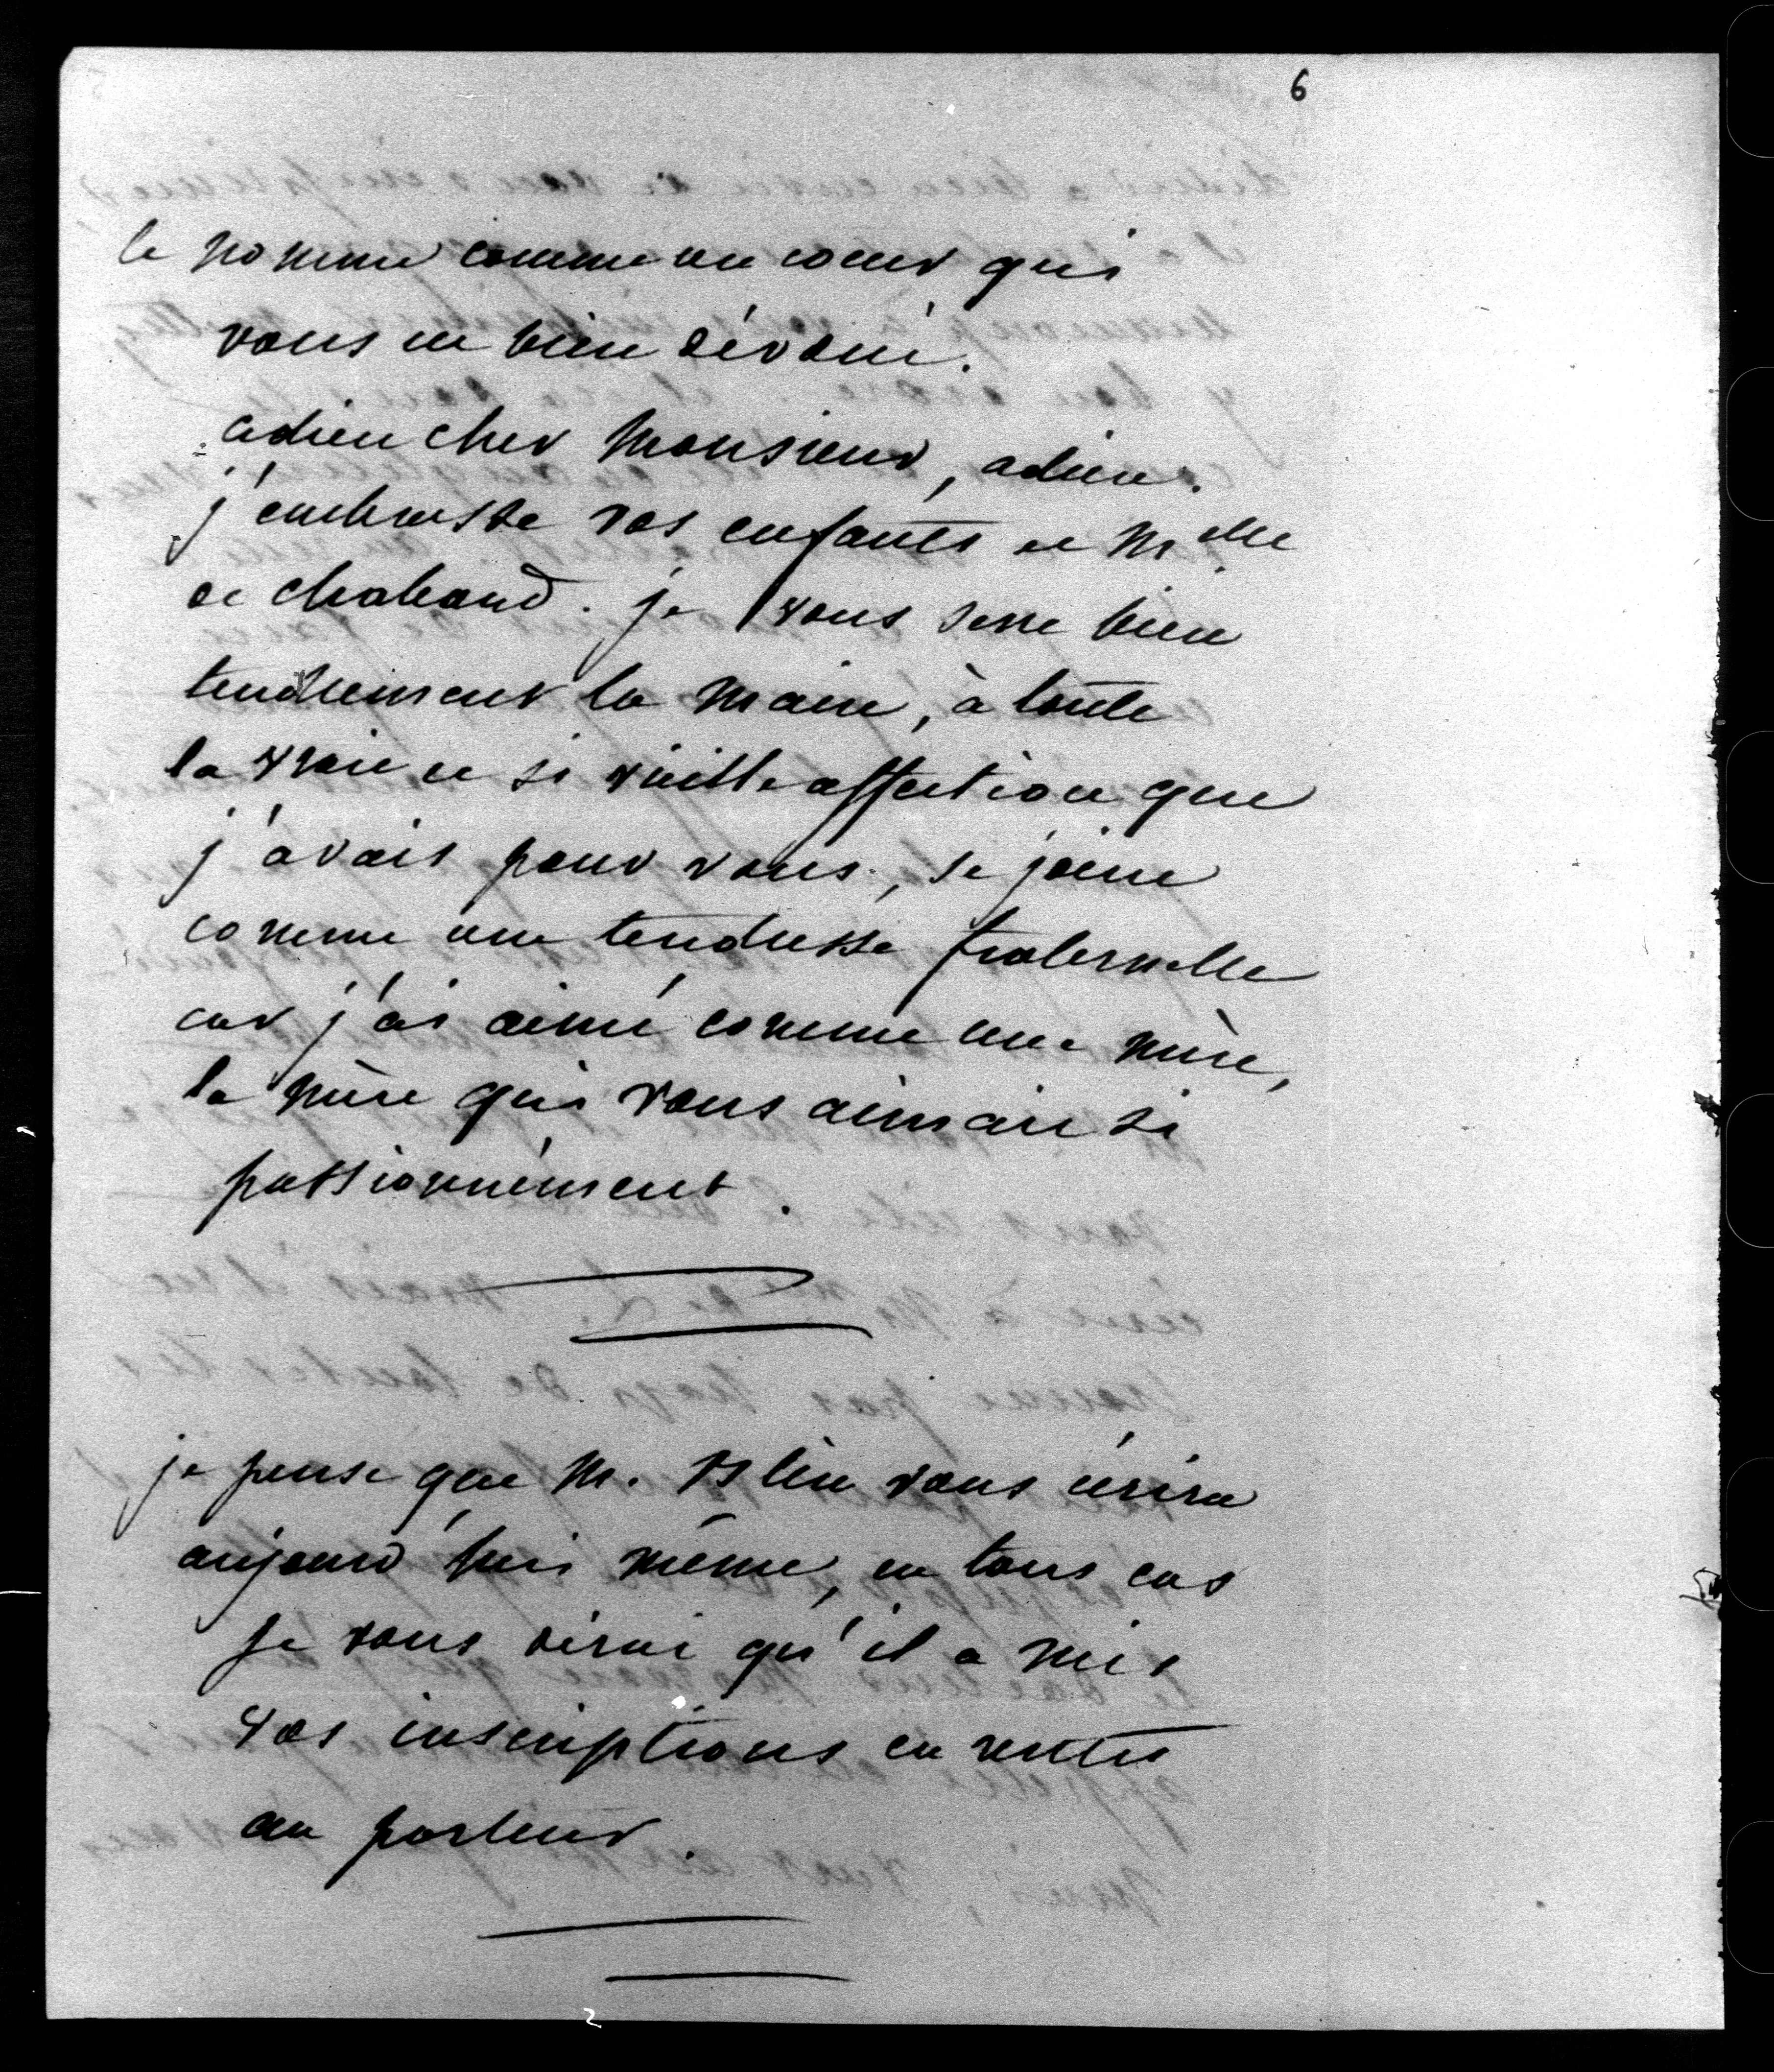 6
le nomme comme un coeur qui
vous est bien dévoué.
adieu cher Monsieur, adieu.
j'embrasse vos enfants et Melle
de chabaud. je vous serre bien
tendrement la main, à toute
la vraie et si vieille affection que
j'avais pour vous, se joint
comme une tendresse fraternelle
car j'ai aimé comme une mère,
la mère qui vous aimait si
passionnément.
je pense que M. Blin vous écrira
aujourd'hui même, en tous cas
je vous dirai qu'il a mis
vos inscriptions en rentes
au porteur.